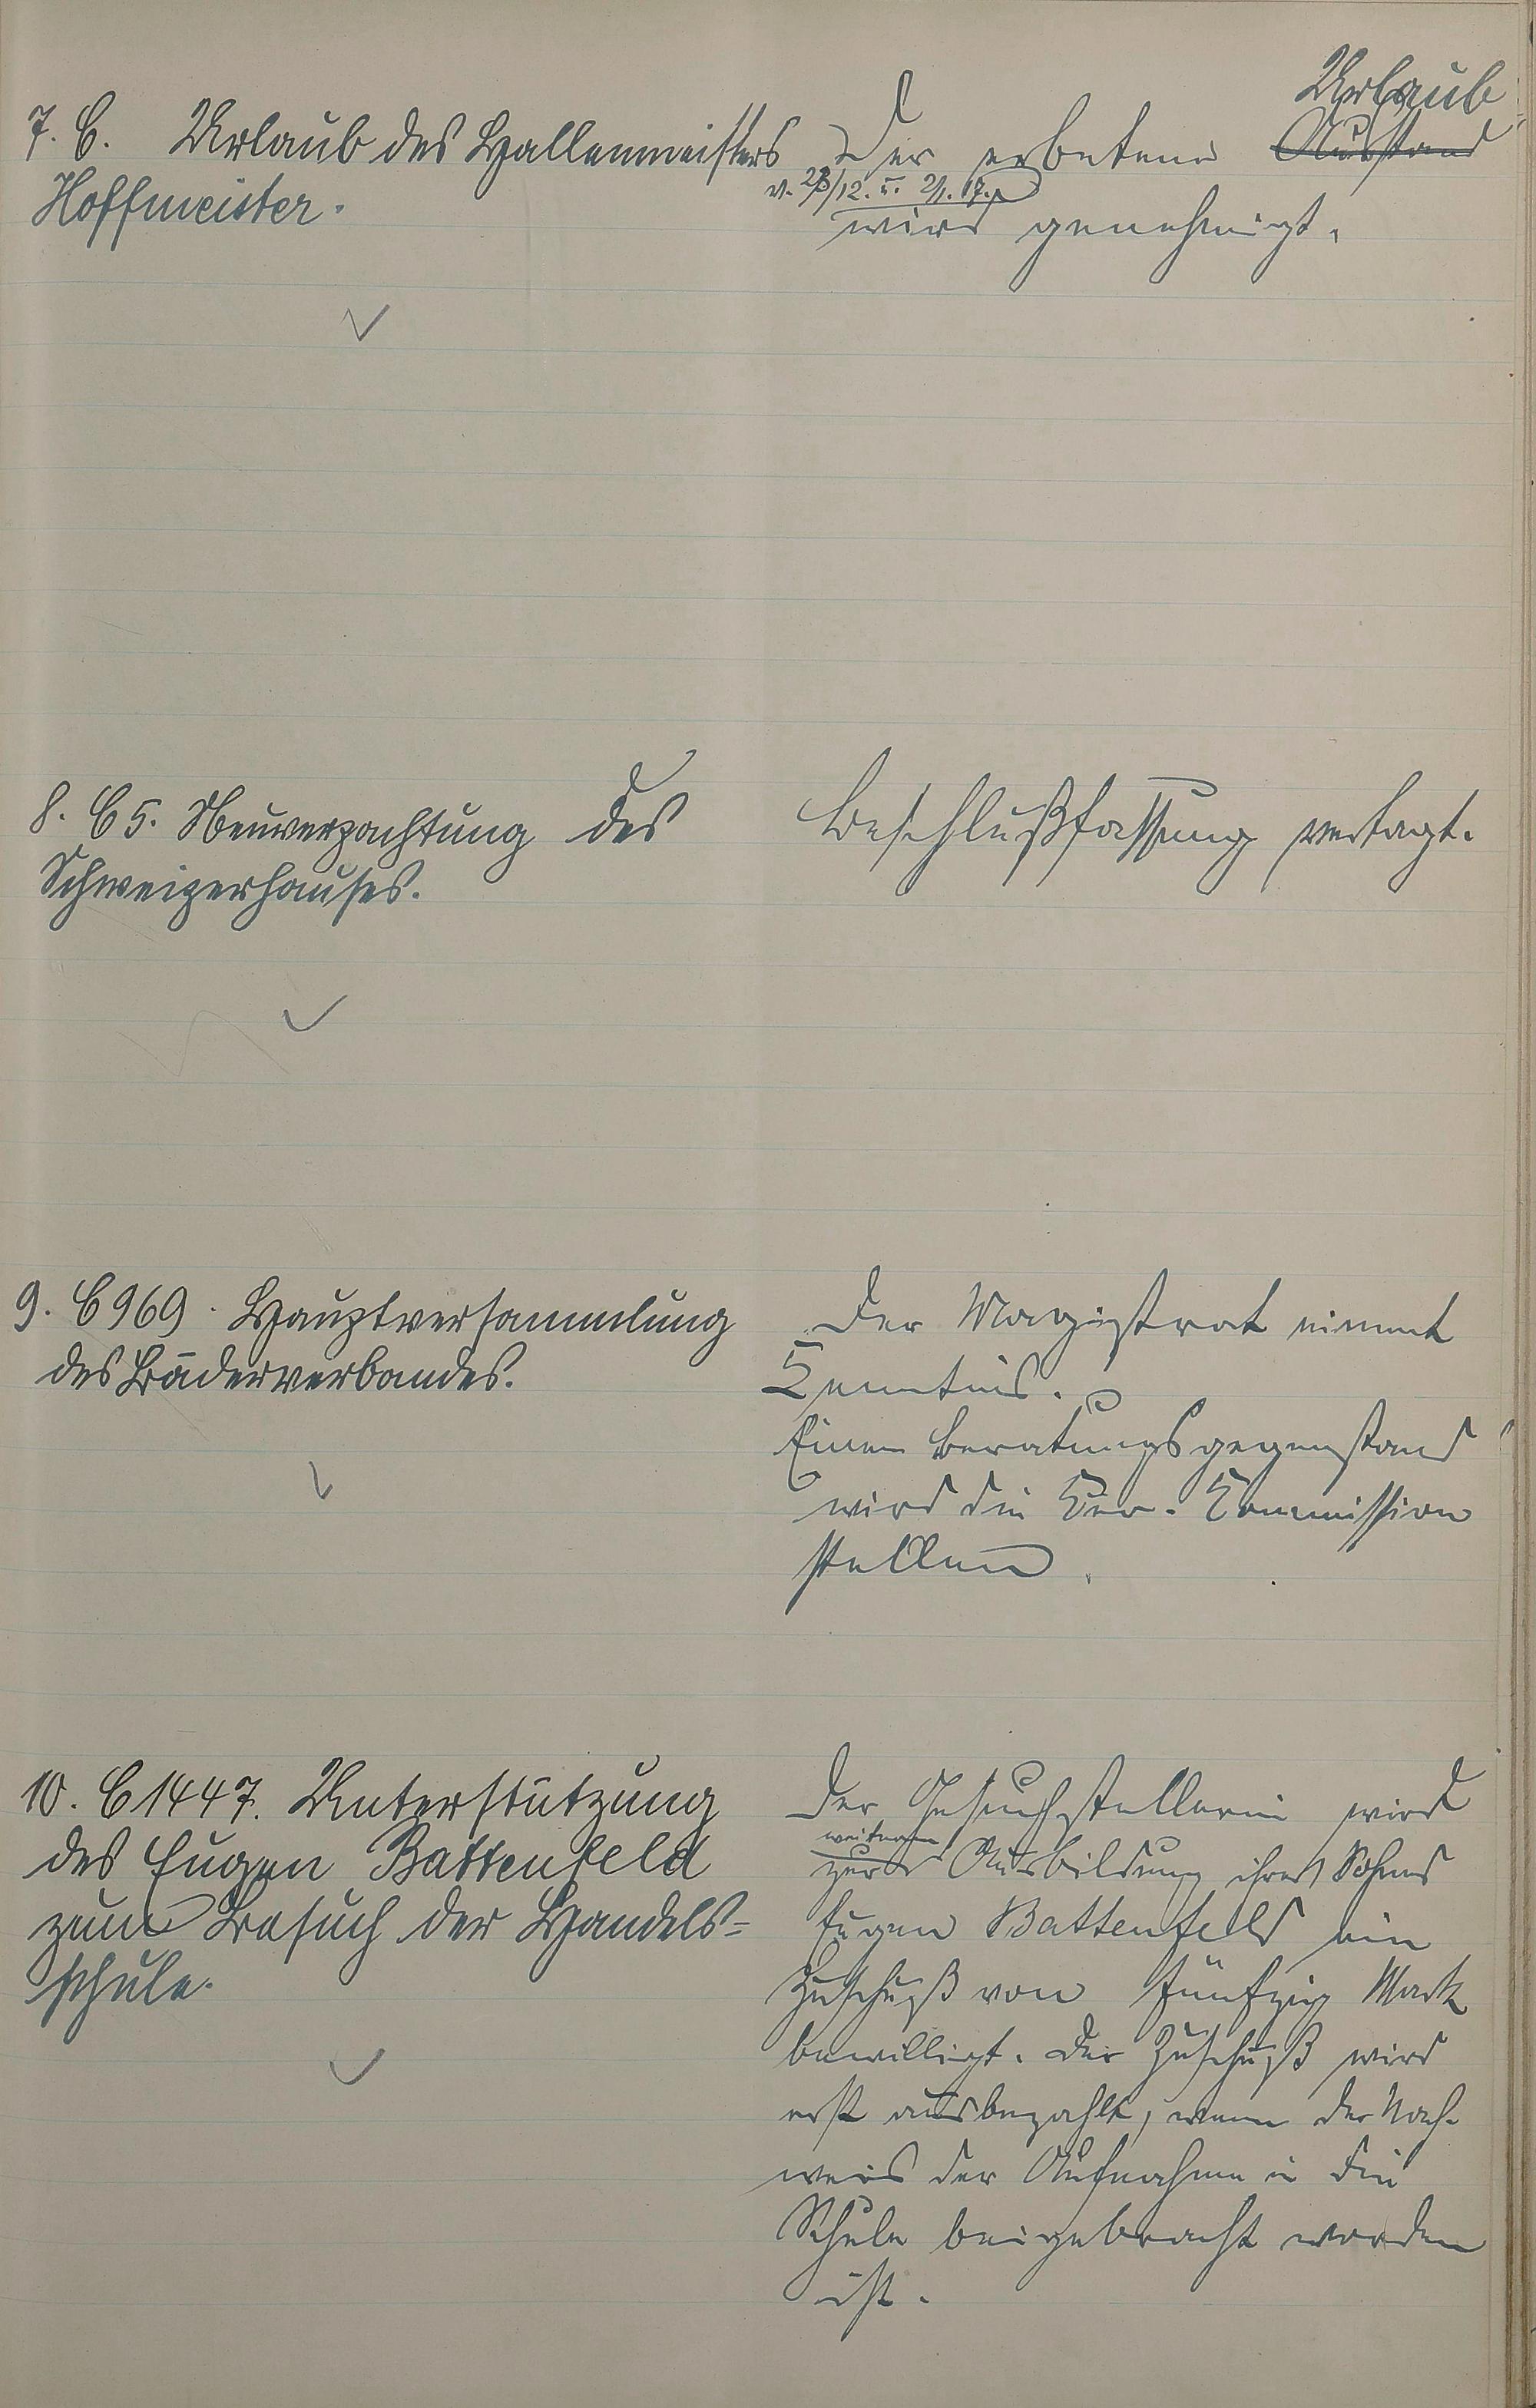 7. C. Urlaub des Hallenmeisters
Hoffmeister.
Urlaub
Der erbetene Ausstand
v. 23/12. u. 2/1. 17.
wird genehmigt.
8. C 5. Neuverpachtung des
Schweizerhauses.
Beschlußfassung vertagt.
9. C 969. Hauptversammlung
des Bäderverbandes.
Der Magistrat nimmt
Kenntnis.
Einen Beratungsgegenstand
wird die Kur-Kommission
stellen.
10. C 1447. Unterstützung
des Eugen Battenfeld
zum Besuch der Handels=
schule.
Der Gesuchstellerin wird
weiteren
zur Ausbildung ihres Sohnes
Eugen Battenfeld ein
Zuschuß von fünfzig Mark
bewilligt. Der Zuschuß wird
erst ausbezahlt, wenn der Nach-
weis der Aufnahme in die
Schule beigebracht worden
ist.